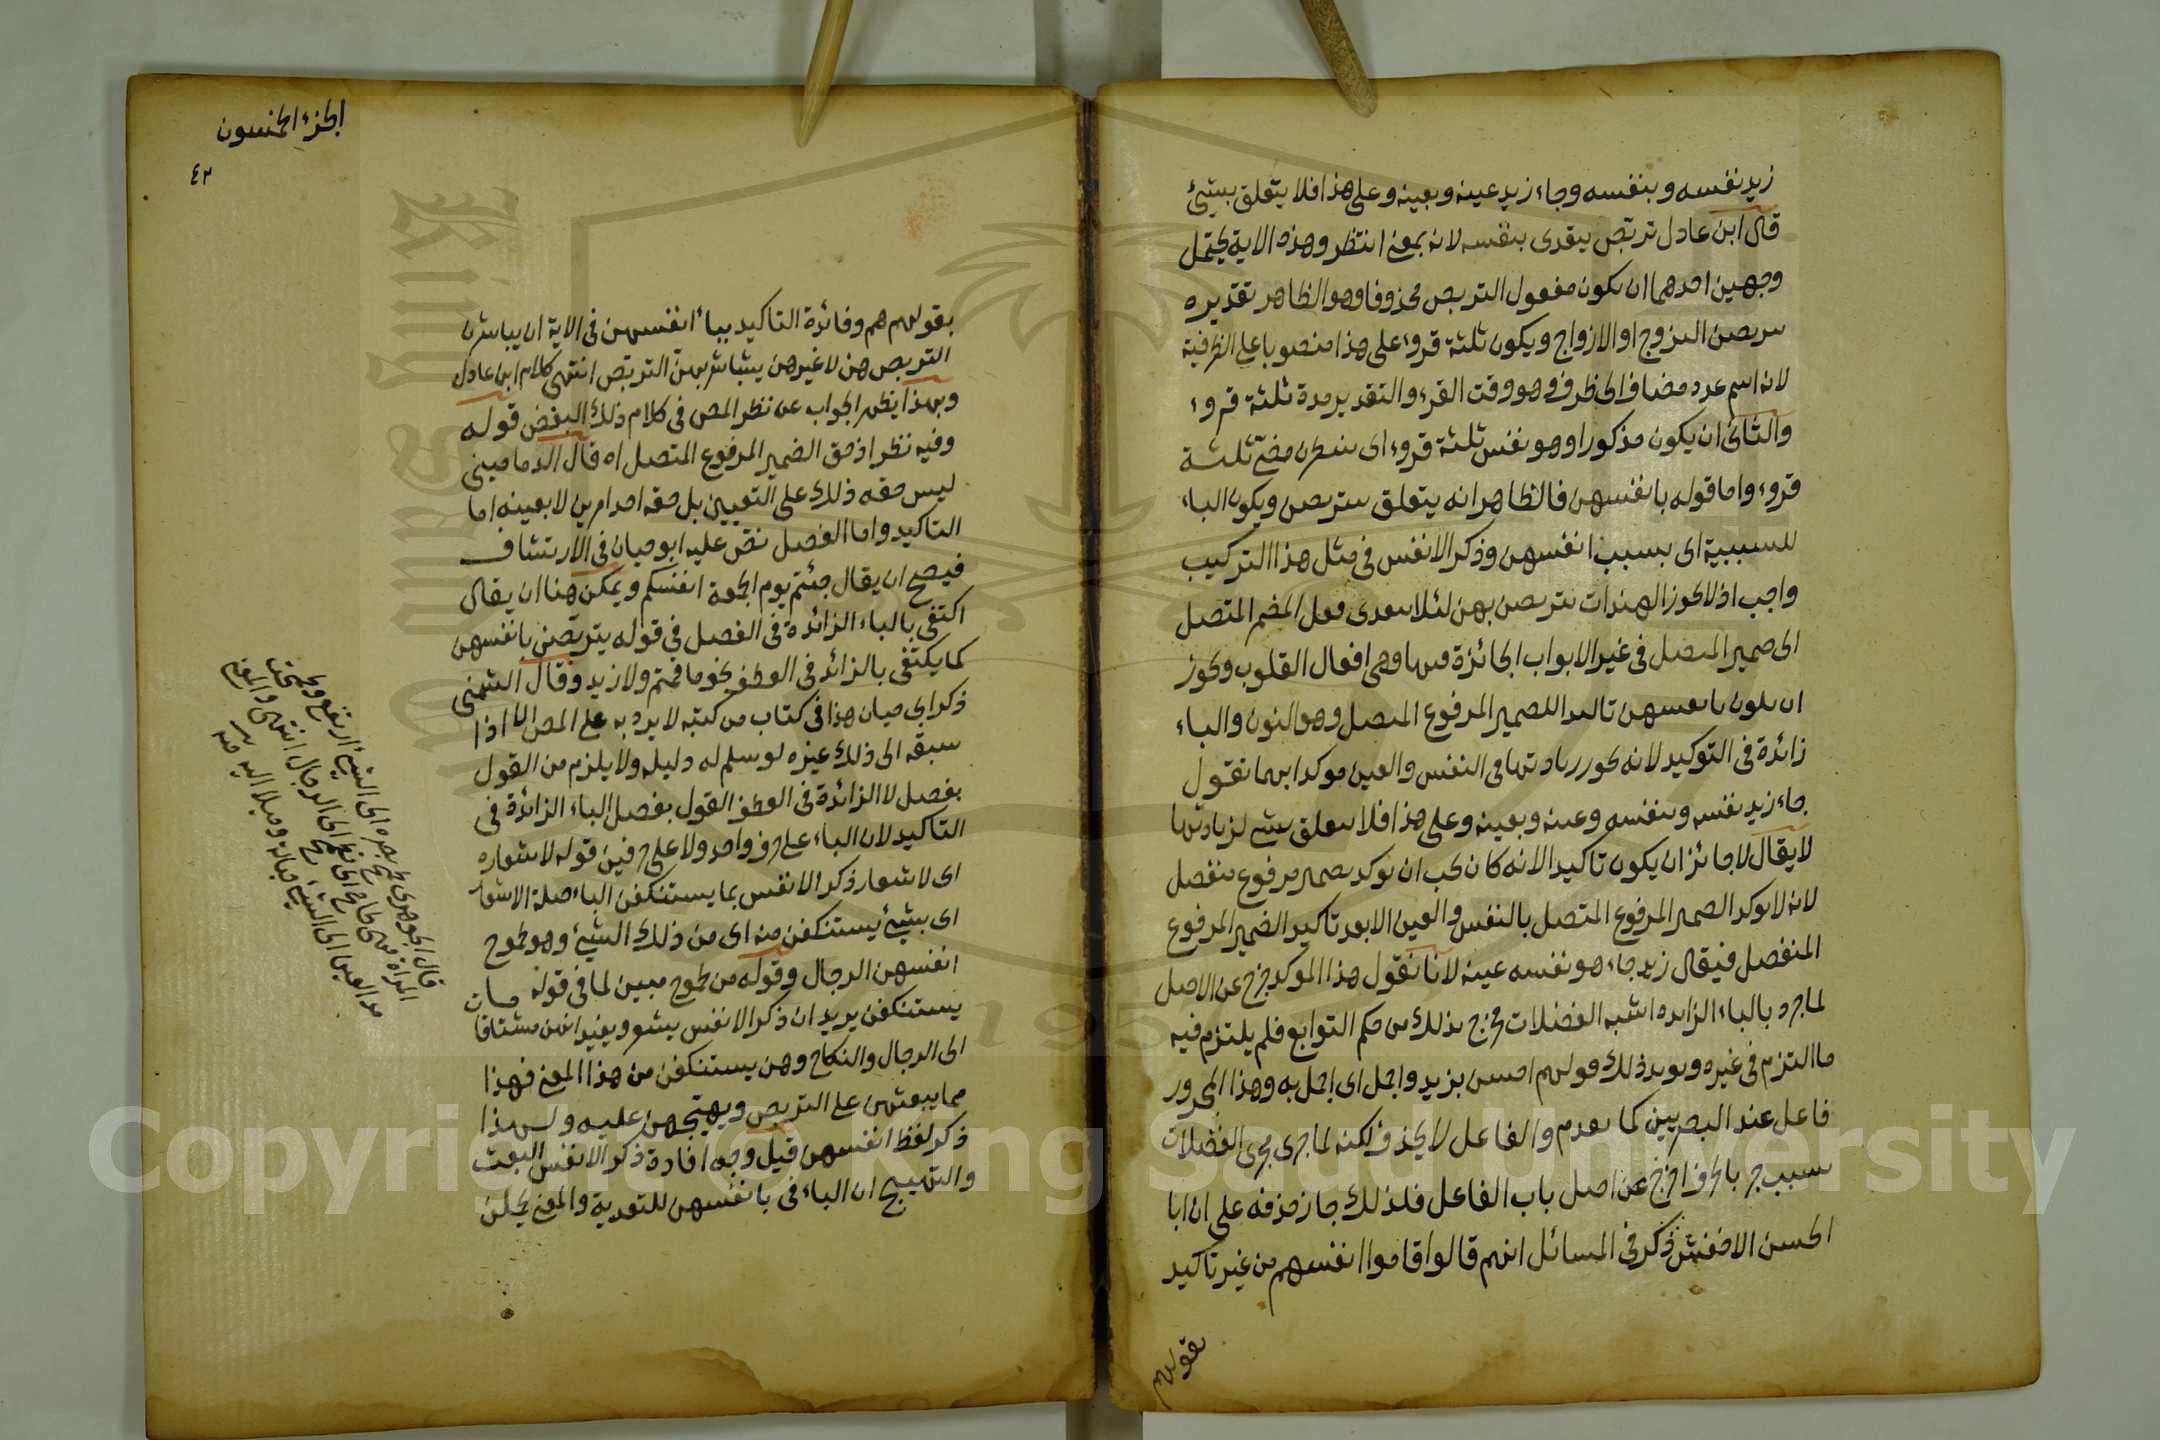 زيد نفسه وبنفسه وجاء زيد عينه وبعينه وعلى هذا فلا يتعلق بشيئ
قال ابن عادل تربص يتعدى بنفسه لانه بمعنى انتظر وهذه الاية يحتمل
وجهين احدهما ان يكون مفعول التربص محذوفا وهو الظاهر تقديره
يتربصن التزوج او الازواج ويكون ثلثة قروء على هذا منصوبا على الظرفية
لانه اسم عدد مضاف الى ظرف وهو وقت القرء والتقدير مدة ثلثة قروء
والثانى ان يكون مذكورا وهو نفس ثلثة قروء اى ينتظرن مضى ثلثة
قروء واما قوله بانفسهن فالظاهر انه يتعلق بيتربصن ويكون الباء
للسببية اى بسبب انفسهن وذكر الانفس فى مثل هذا التركيب
واجب اذ لا يجوز الهندات يتربصن بهن لئلا يتعدى فعل المضمر المتصل
الى ضمير المتصل فى غير الابواب الجائزة فيها وهى افعال القلوب ويجوز
ان يكون بانفسهن تاكيدا للضمير المرفوع المتصل وهو النون والباء
زائدة فى التوكيد لانه يجوز زيادتها فى النفس والعين موكدا بهما نقول
جاء زيد نفسه وبنفسه وعينه وبعينه وعلى هذا فلا يتعلق بشيئ لزيادتها
لا يقال لا جائز ان يكون تاكيدا لانه كان يجب ان يوكد بضمير مرفوع منفصل
لانه لا يوكد الضمير المرفوع المتصل بالنفس والعين الا بعد تاكيد الضمير المرفوع
المنفصل فيقال زيد جاء هو نفسه عينه لانا نقول هذا الموكد خرج عن الاصل
لما جر بالباء الزائده اشبه الفضلات فخرج بذلك من حكم التوابع فلم يلتزم فيه
ما التزم فى غيره ويويد ذلك قولهم احسن بزيد واجمل اى اجمل به وهذا المجرور
فاعل عند البصريين كما تقدم والفاعل لا يحذف لكنه لما جرى مجرى الفضلات
بسبب جر بالحرف اخرج عن اصل باب الفاعل فلذلك جاز حذفه على ان ابا
الحسن الاخفش ذكر فى المسائل انهم قالوا قاموا انفسهم من غير تاكيد
بقولهم
الجزء الخمسون
٤٢
بقولهم هم وفائدة التاكيد ببأ انفسهن فى الاية ان يباشرن
التربص هن لا غيرهن يشاشربهن التربص انتهى كلام ابن عادل
وبهذا يظهر الجواب عن نظر المص فى كلام ذلك البعض قوله
وفيه نظر اذ حق الضمير المرفوع المتصل اه قال الدمامينى
ليس حقه ذلك على التعيين بل حقه احد امرين لا بعينه اما
التاكيد واما الفصل نص عليه ابو حيان فى الارتشاف
فيصح ان يقال جئتم يوم الجمعة انفسكم ويمكن هنا ان يقال
اكتفى بالباء الزائدة فى الفصل فى قوله يتربصن بانفسهن
كما يكتفى بالزائد فى العطف نحو ما قمتم ولا زيد وقال الشمنى
ذكر ابى حيان هذا فى كتاب من كتبه لا يرد به على المص الا اذا
سبقه الى ذلك غيره لو سلم له دليله ولا يلزم من القول
بفصل لا الزائدة فى العطف القول بفصل الباء الزائدة فى
التاكيد لان الباء على حرف واحد ولا على حرفين قوله لاشعاره
اى لاشعار ذكر الانفس بما يستنكفن الباء صلة الاشعار
اى بشيئ يستنكفن منه اى من ذلك الشيئ وهو طموح
انفسهن الرجال وقوله من طموح مبين لما فى قوله
يستنكفن يريد ان ذكر الانفس يشعر ويفيد انهن مشتاقات
الى الرجال والنكاح وهن يستنكفن من هذا المعنى فهذا
مما يبعثهن على التربص ويهيجهن عليه ولهذا
ذكر لفظ انفسهن قيل وجه افادة ذكر الانفس البعث
والتهييج ان الباء فى بانفسهن للتعدية والمعنى يحملن
قال الجوهرى طمح بصره الى الشيئ ارتفع وطمحت
المراة فهى طامح اى تطمح الى الرجال انتهى